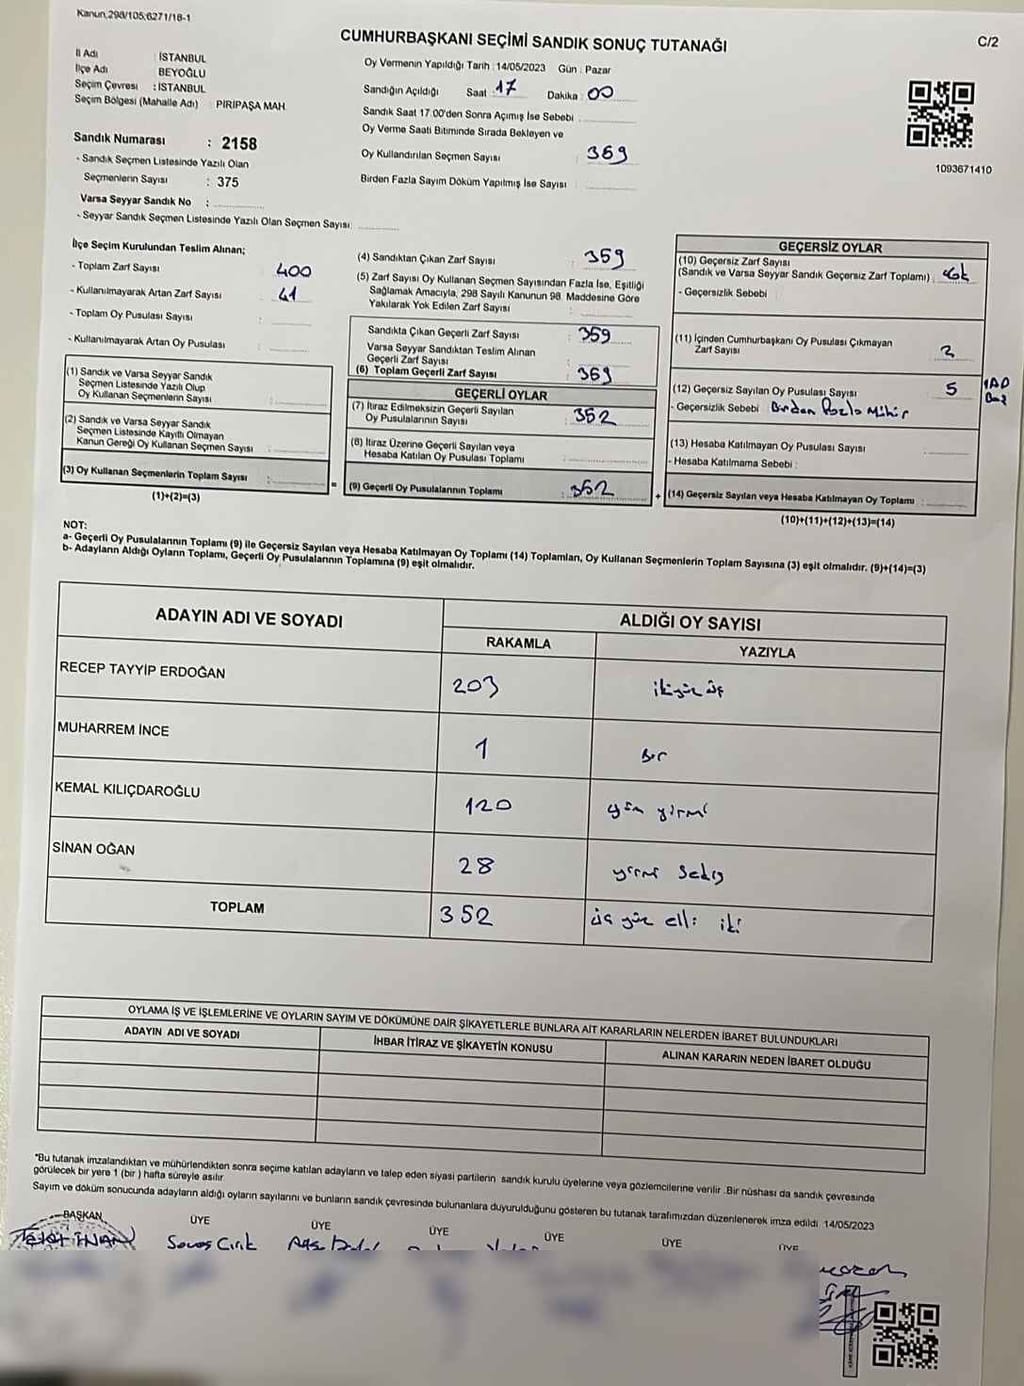 Kanun,298/105;6271/18-1
C/2
CUMHURBAŞKANI SEÇİMİ SANDIK SONUÇ TUTANAĞI
İl Adı : İSTANBUL
İlçe Adı : BEYOĞLU
Seçim Çevresi : İSTANBUL
Seçim Bölgesi (Mahalle Adı) : PİRİPAŞA MAH.
Sandık Numarası : 2158
- Sandık Seçmen Listesinde Yazılı Olan
Seçmenlerin Sayısı : 375
Varsa Seyyar Sandık No :
- Seyyar Sandık Seçmen Listesinde Yazılı Olan Seçmen Sayısı:
Oy Vermenin Yapıldığı Tarih : 14/05/2023 Gün : Pazar
Sandığın Açıldığı Saat : 17 Dakika : 00
Sandık Saat 17:00'den Sonra Açımış İse Sebebi :
Oy Verme Saati Bitiminde Sırada Bekleyen ve
Oy Kullandırılan Seçmen Sayısı : 369
Birden Fazla Sayım Döküm Yapılmış İse Sayısı :
1093671410
İlçe Seçim Kurulundan Teslim Alınan;
- Toplam Zarf Sayısı : 400
- Kullanılmayarak Artan Zarf Sayısı : 41
- Toplam Oy Pusulası Sayısı :
- Kullanılmayarak Artan Oy Pusulası :
(1) Sandık ve Varsa Seyyar Sandık
Seçmen Listesinde Yazılı Olup
Oy Kullanan Seçmenlerin Sayısı :
(2) Sandık ve Varsa Seyyar Sandık
Seçmen Listesinde Kayıtlı Olmayan
Kanun Gereği Oy Kullanan Seçmen Sayısı :
(3) Oy Kullanan Seçmenlerin Toplam Sayısı :
(1)+(2)=(3)
(4) Sandıktan Çıkan Zarf Sayısı : 359
(5) Zarf Sayısı Oy Kullanan Seçmen Sayısından Fazla İse, Eşitliği
Sağlamak Amacıyla, 298 Sayılı Kanunun 98. Maddesine Göre
Yakılarak Yok Edilen Zarf Sayısı :
Sandıkta Çıkan Geçerli Zarf Sayısı : 359
Varsa Seyyar Sandıktan Teslim Alınan
Geçerli Zarf Sayısı :
(6) Toplam Geçerli Zarf Sayısı : 369
GEÇERLİ OYLAR
(7) İtiraz Edilmeksizin Geçerli Sayılan
Oy Pusulalarının Sayısı : 352
(8) İtiraz Üzerine Geçerli Sayılan veya
Hesaba Katılan Oy Pusulası Toplamı :
= (9) Geçerli Oy Pusulalarının Toplamı : 352
GEÇERSİZ OYLAR
(10) Geçersiz Zarf Sayısı
(Sandık ve Varsa Seyyar Sandık Geçersiz Zarf Toplamı) :
- Geçersizlik Sebebi :
(11) İçinden Cumhurbaşkanı Oy Pusulası Çıkmayan
Zarf Sayısı : 2
(12) Geçersiz Sayılan Oy Pusulası Sayısı : 5
- Geçersizlik Sebebi : Birden Fazla Mühür
(13) Hesaba Katılmayan Oy Pusulası Sayısı :
- Hesaba Katılmama Sebebi :
+ (14) Geçersiz Sayılan veya Hesaba Katılmayan Oy Toplamı :
(10)+(11)+(12)+(13)=(14)
NOT:
a- Geçerli Oy Pusulalarının Toplamı (9) ile Geçersiz Sayılan veya Hesaba Katılmayan Oy Toplamı (14) Toplamları, Oy Kullanan Seçmenlerin Toplam Sayısına (3) eşit olmalıdır. (9)+(14)=(3)
b- Adayların Aldığı Oyların Toplamı, Geçerli Oy Pusulalarının Toplamına (9) eşit olmalıdır.
ADAYIN ADI VE SOYADI
ALDIĞI OY SAYISI
RAKAMLA
YAZIYLA
RECEP TAYYİP ERDOĞAN 203 ikiyüz üç
MUHARREM İNCE 1 Bir
KEMAL KILIÇDAROĞLU 120 yüz yirmi
SİNAN OĞAN 28 yirmi sekiz
TOPLAM 352 üç yüz elli iki
OYLAMA İŞ VE İŞLEMLERİNE VE OYLARIN SAYIM VE DÖKÜMÜNE DAİR ŞİKAYETLERLE BUNLARA AİT KARARLARIN NELERDEN İBARET BULUNDUKLARI
ADAYIN ADI VE SOYADI
İHBAR İTİRAZ VE ŞİKAYETİN KONUSU
ALINAN KARARIN NEDEN İBARET OLDUĞU
*Bu tutanak imzalandıktan ve mühürlendikten sonra seçime katılan adayların ve talep eden siyasi partilerin sandık kurulu üyelerine veya gözlemcilerine verilir .Bir nüshası da sandık çevresinde
görülecek bir yere 1 (bir ) hafta süreyle asılır.
Sayım ve döküm sonucunda adayların aldığı oyların sayılarını ve bunların sandık çevresinde bulunanlara duyurulduğunu gösteren bu tutanak tarafımızdan düzenlenerek imza edildi. 14/05/2023
BAŞKAN ÜYE ÜYE ÜYE ÜYE ÜYE ÜYE
Savaş Cırık